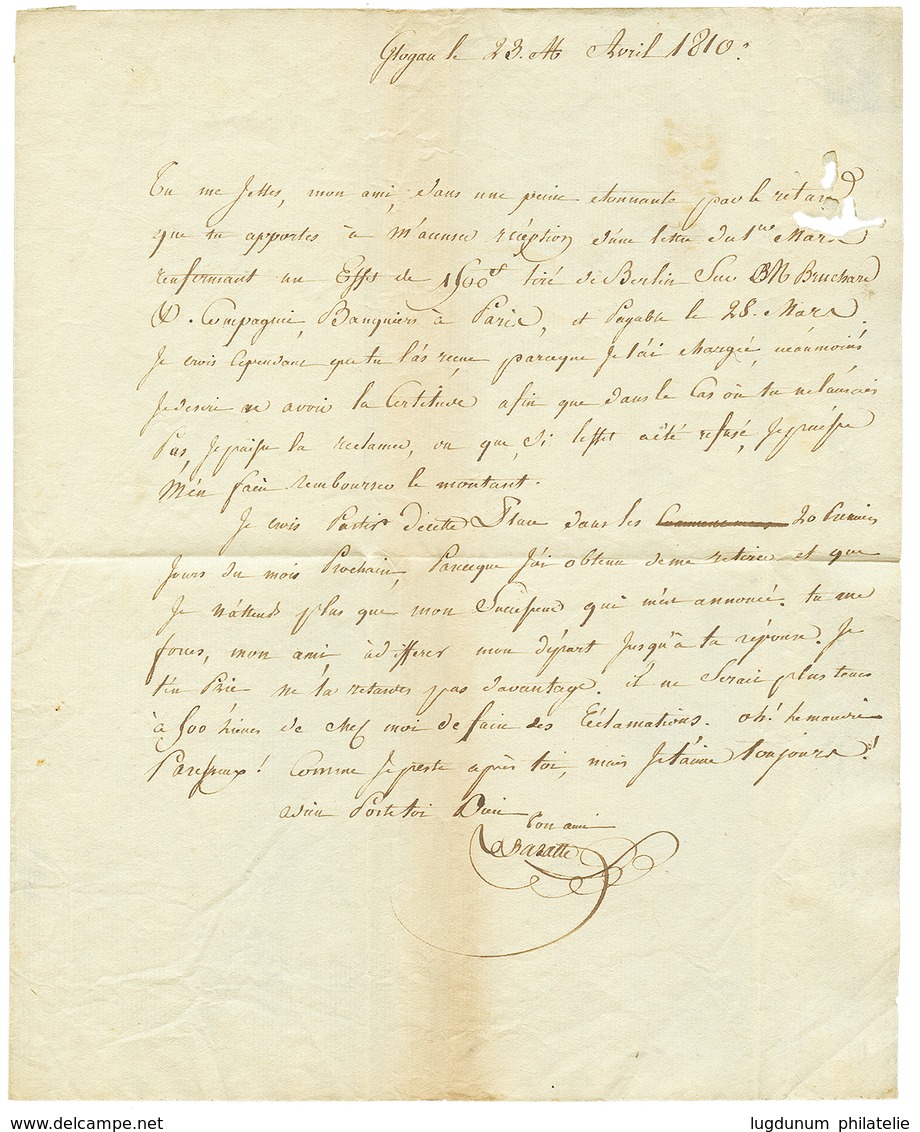 Glogau le 23. Avril 1810.
Tu me Jettes, mon ami, dans une peine etonnante par le retard
que tu apportes à m'accuser réception d'une lettre du 1er Mars
renfermant un Effet de 1500 tiré de Berlin Sur MM Bruchard
& Compagnie, Banquiers à Paris, et Payable le 28. Mars.
Je crois Cependant que tu l'as reçue, parceque Je l'ai chargée, néanmoins
Je desire en avoir la Certitude afin que dans le Cas où tu ne l'aurais
Pas, Je puisse la réclamer, ou que, Si l'effet a été refusé, Je puisse
M'en faire rembourser le montant.
Je crois Partir de cette Place dans les 20 Premiers
Jours du mois Prochain, Parceque J'ai obtenu de me retirer et que
Je n'attends plus que mon Successeur qui m'est annoncé. tu me
forces, mon ami, à differer mon départ Jusqu'à ta réponse. Je
t'en Prie ne la retardes pas davantage. il ne Serait plus tems
à 500 lieues de chez moi de faire des Réclamations. oh! le maudit
Paresseux! Comme Je peste après toi, mais Je t'aime toujours!
adieu Porte toi Bien
Ton ami
lugdunum philatelie